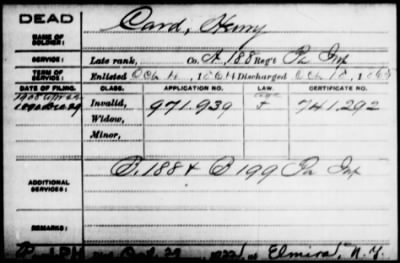 DEAD
NAME OF SOLDIER:
Card, Henry
SERVICE:
Late rank, Co. A, 188 Reg't Pa Inf
TERM OF SERVICE:
Enlisted Oct , 186 Discharged Oct , 186
DATE OF FILING. CLASS. APPLICATION NO. LAW. CERTIFICATE NO.
Invalid, 971.939 741.292
Widow,
Minor,
ADDITIONAL SERVICES:
188 & 199 Pa Inf
REMARKS:
at Elmira, N.Y.